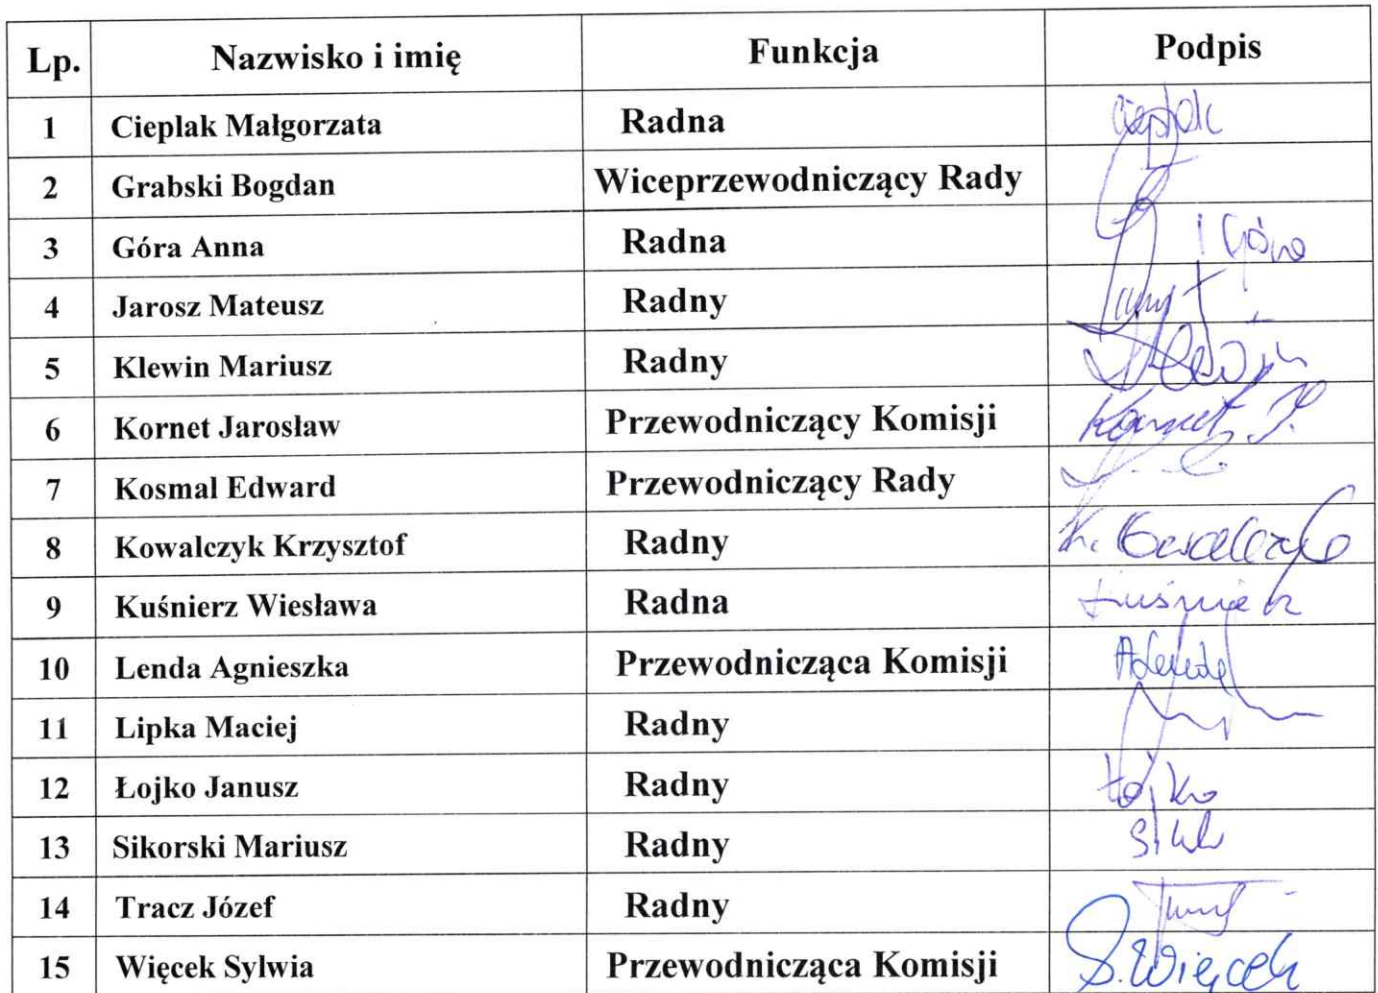 Lp. Nazwisko i imię Funkcja Podpis
1 Cieplak Małgorzata Radna Cieplak
2 Grabski Bogdan Wiceprzewodniczący Rady
3 Góra Anna Radna Góra
4 Jarosz Mateusz Radny
5 Klewin Mariusz Radny
6 Kornet Jarosław Przewodniczący Komisji Kornet J.
7 Kosmal Edward Przewodniczący Rady
8 Kowalczyk Krzysztof Radny K. Kowalczyk
9 Kuśnierz Wiesława Radna Kuśnierz
10 Lenda Agnieszka Przewodnicząca Komisji ALenda
11 Lipka Maciej Radny
12 Łojko Janusz Radny Łojko
13 Sikorski Mariusz Radny
14 Tracz Józef Radny
15 Więcek Sylwia Przewodnicząca Komisji S. Więcek